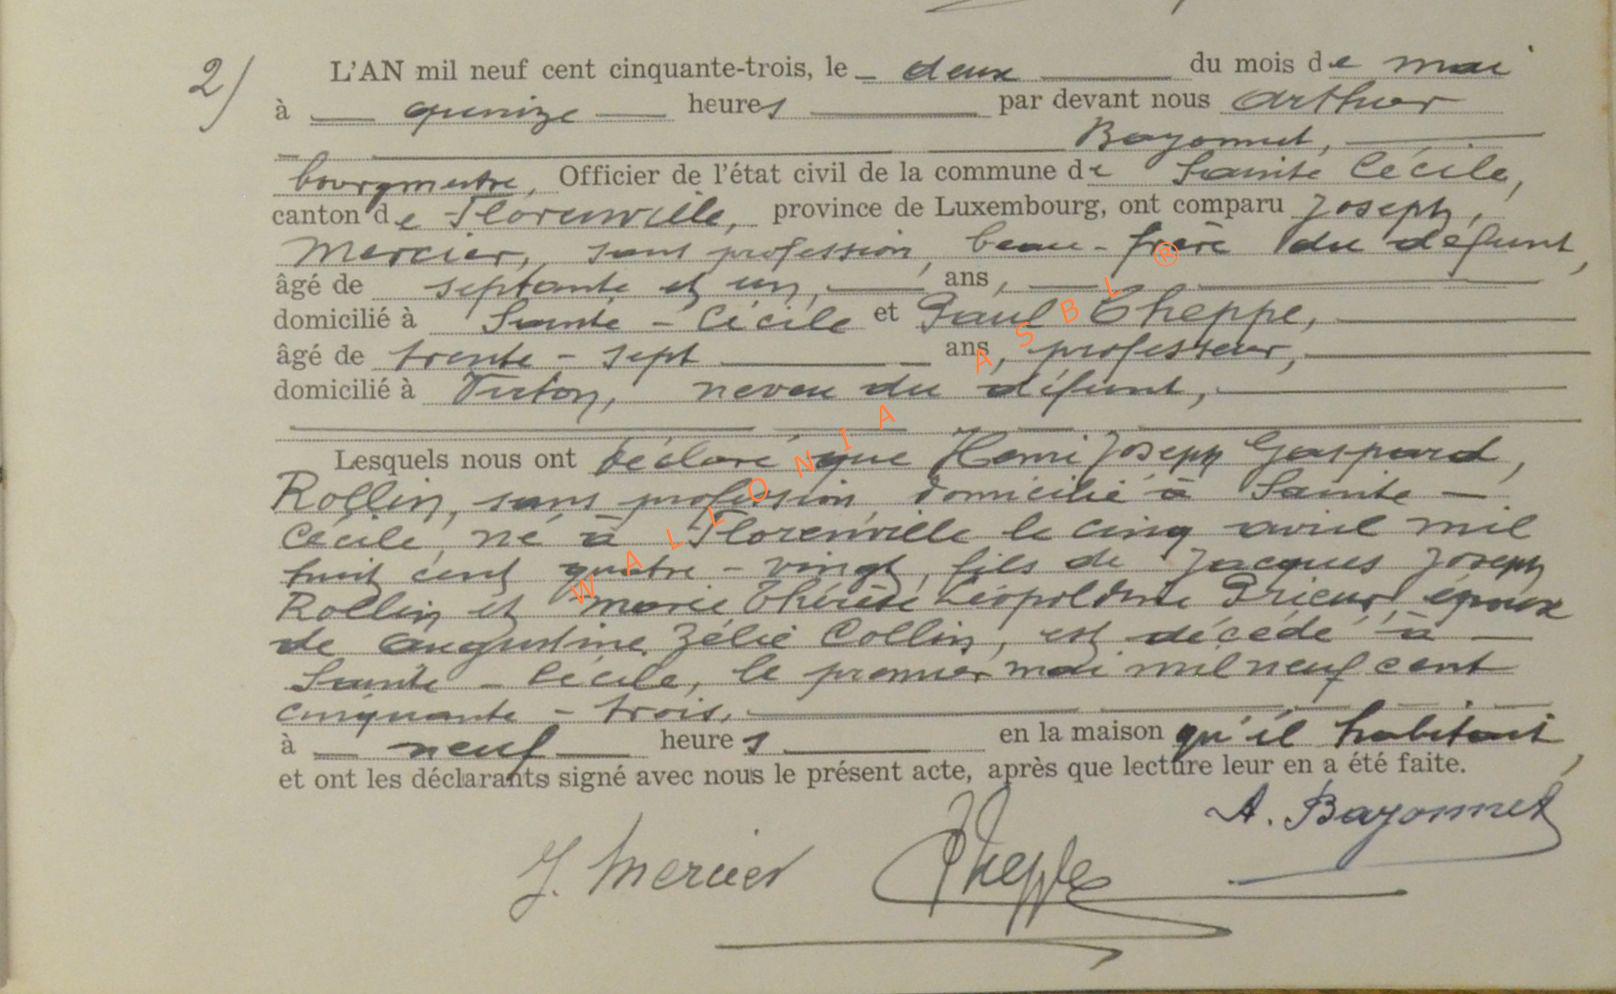 2) L'AN mil neuf cent cinquante-trois, le deux du mois de mai
à quinze heures par devant nous Arthur
Bayonnet,
bourgmestre, Officier de l'état civil de la commune de Sainte Cécile,
canton de Florenville, province de Luxembourg, ont comparu Joseph,
Mercier, sans profession, beau-frère du défunt,
âgé de septante et un, ans,
domicilié à Sainte-Cécile et Paul Theppe,
âgé de trente-sept ans, professeur,
domicilié à Virton, neveu du défunt,
Lesquels nous ont déclaré que Henri Joseph Gaspard,
Rollin, sans profession, domicilié à Sainte-
Cécile, né à Florenville le cinq avril mil
huit cent quatre-vingt, fils de Jacques Joseph
Rollin et Marie Thérèse Léopoldine Prieur, époux
de Augustine Zélie Collin, est décédé à
Sainte-Cécile, le premier mai mil neuf cent
cinquante-trois,
à neuf heures en la maison qu'il habitait,
et ont les déclarants signé avec nous le présent acte, après que lecture leur en a été faite.
A. Bayonnet
J. Mercier Theppe
WALLONIA ASBL ®